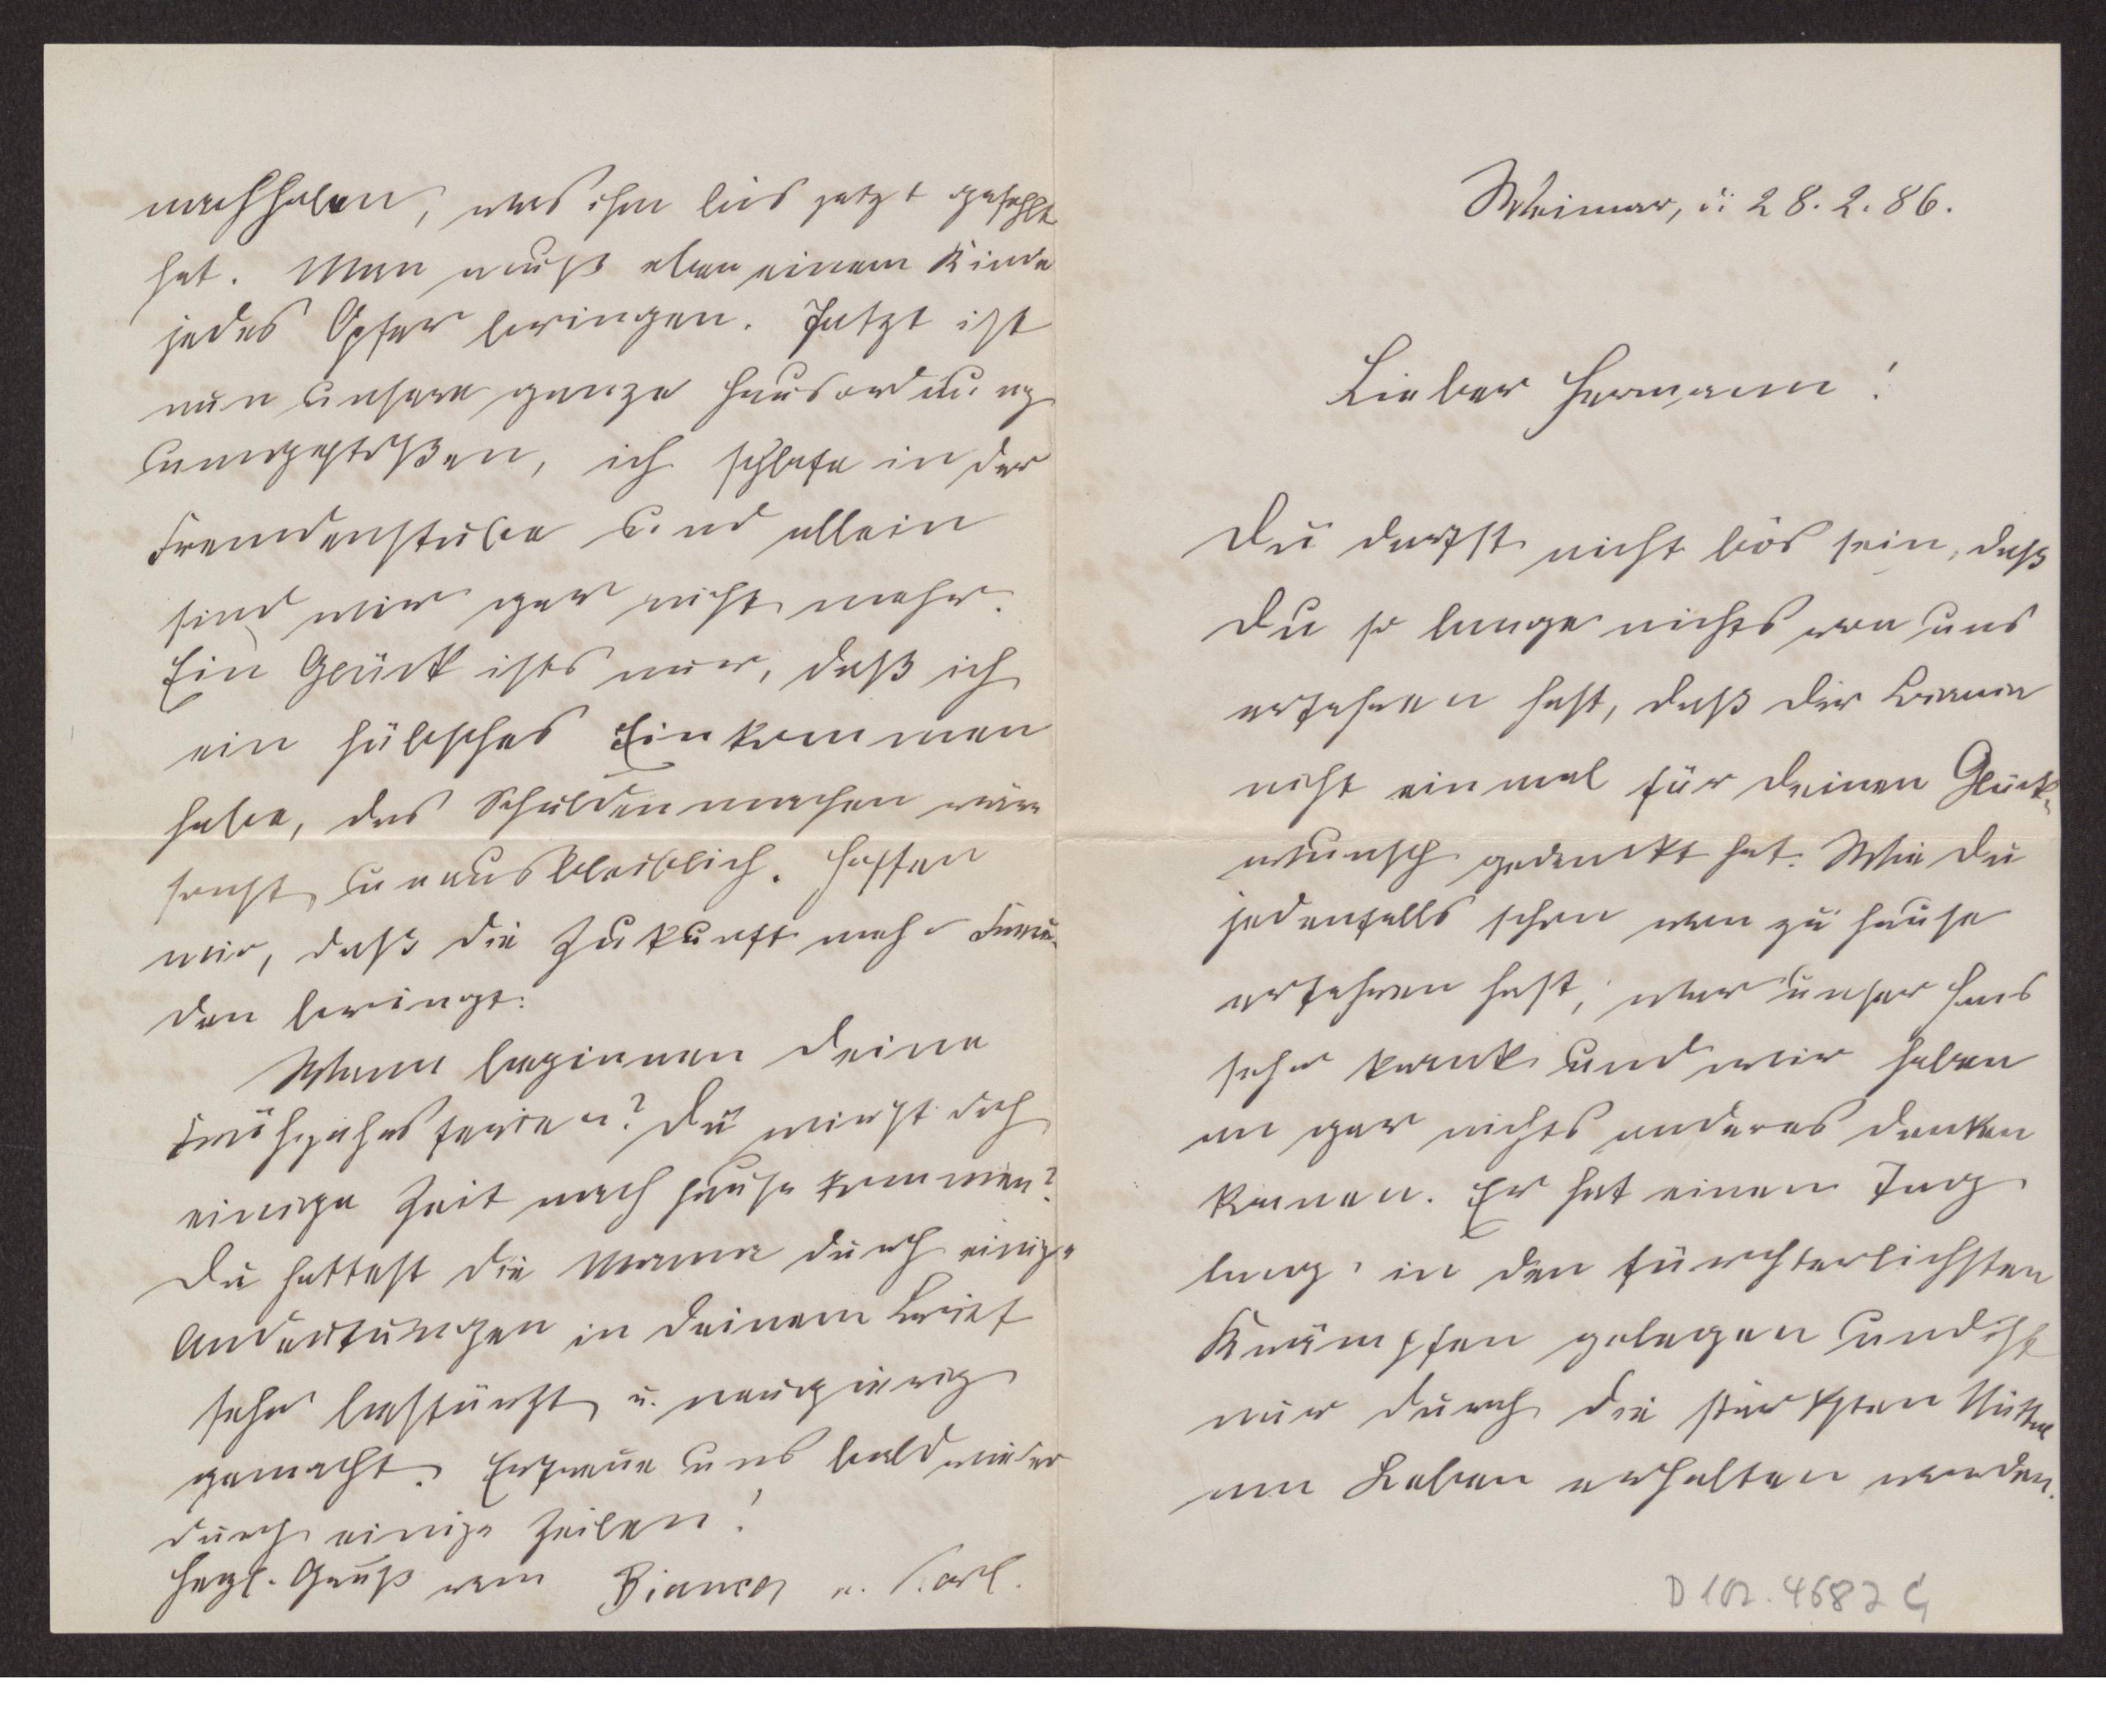 Weimar, d. 28.2.86.
Lieber Hermann!
Du darfst nicht bös sein, daß
Du so lange nichts von uns
erfahren hast, daß dir Bianca
nicht einmal für deinen Glück-
wunsch gedankt hat. Wie du
jedenfalls schon von zu Hause
erfahren hast, war unser Hans
sehr krank und wir haben
an gar nichts anderes denken
können. Er hat einen Tag
lang in den fürchterlichsten
Krämpfen gelegen und ist
nur durch die stärksten Mittel
am Leben erhalten worden.
D 102.4682 G
nachholen, was ihm bis jetzt gefehlt
hat. Man muß eben einem Kinde
jedes Opfer bringen. Jetzt ist
nun unsere ganze Hausordnung
umgestoßen, ich schlafe in der
Fremdenstube und allein
sind wir gar nicht mehr.
Ein Glück ists nur, daß ich
ein hübsches Einkommen
habe, das Schuldenmachen wäre
sonst unausbleiblich. Hoffen
wir, daß die Zukunft mehr Freu-
den bringt.
Wann beginnen deine
Frühjahrsferien? Du wirst doch
einige Zeit nach Hause kommen?
Du hattest die Mama durch einige
Andeutungen in deinem Brief
sehr bestürzt u. neugierig
gemacht. Erfreue uns bald wieder
durch einige Zeilen!
Herzl. Gruß von Bianca u. Karl.